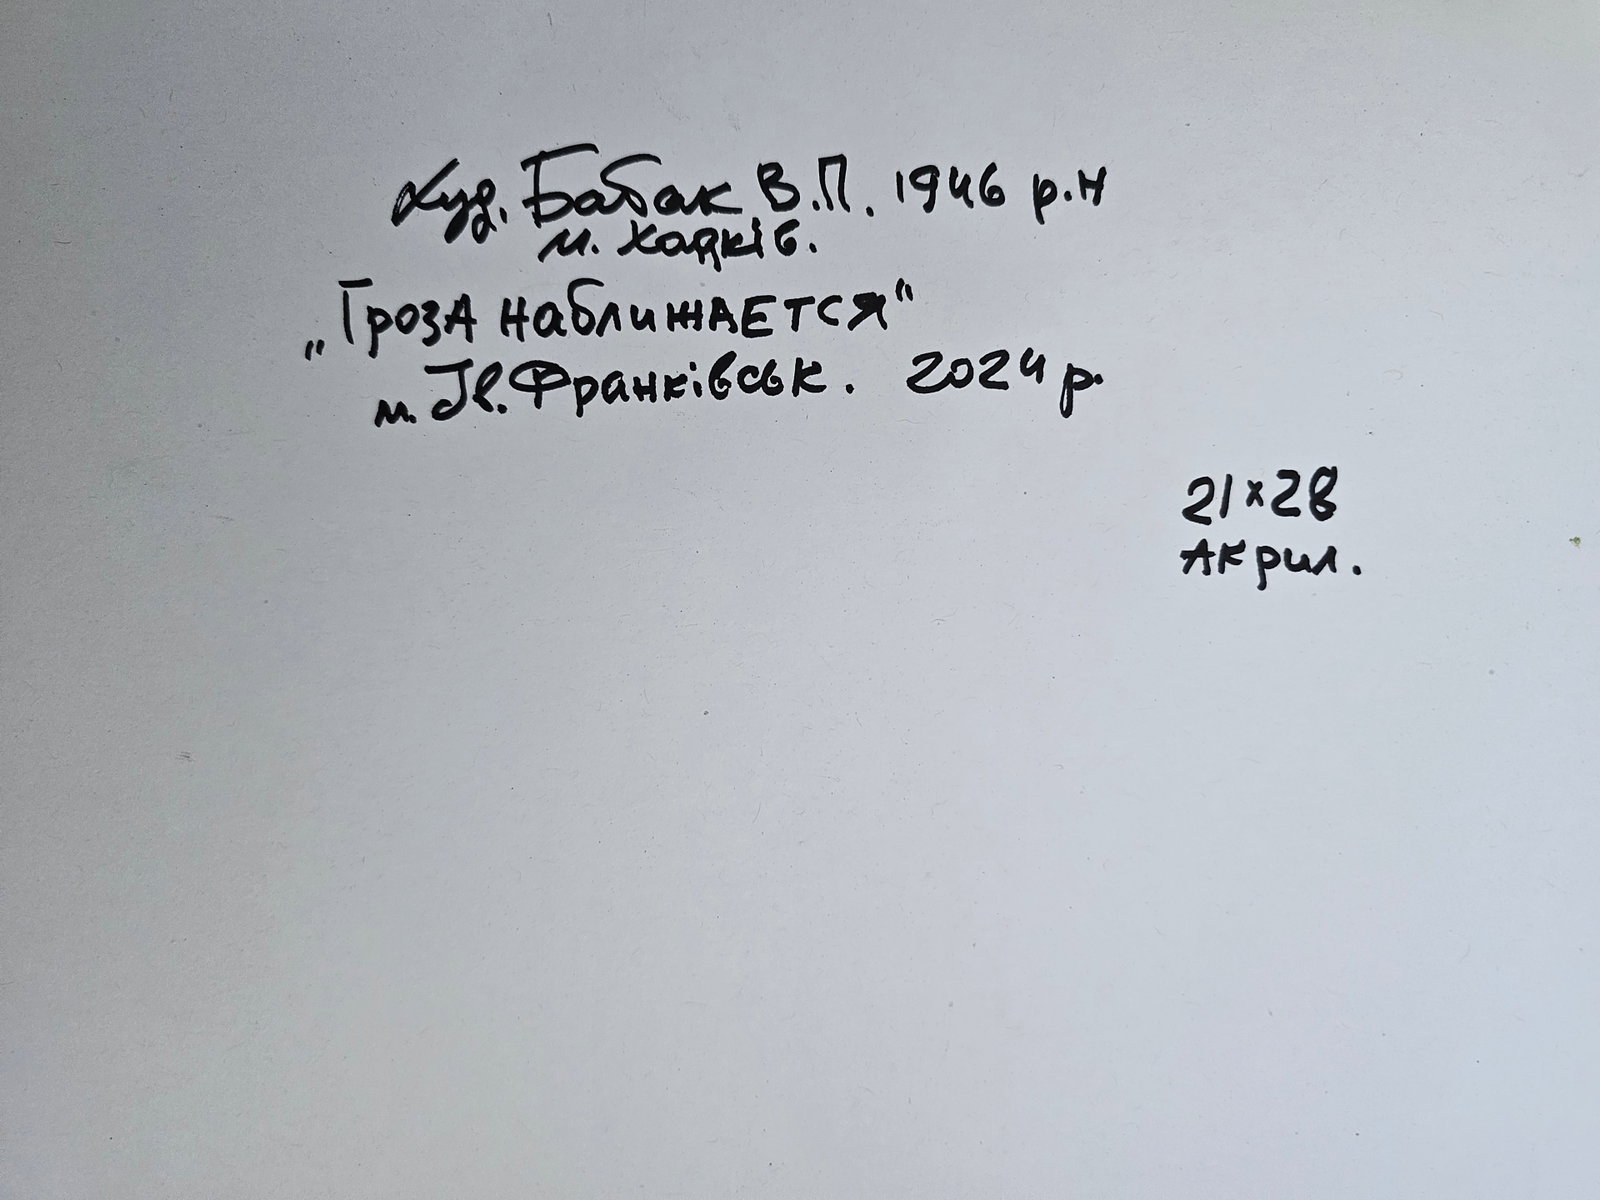 Худ. Бабак В.П. 1946 р.н
м. Харків.
„Гроза наближается"
м. Ів. Франківськ. 2024 р.
21×28
Акрил.